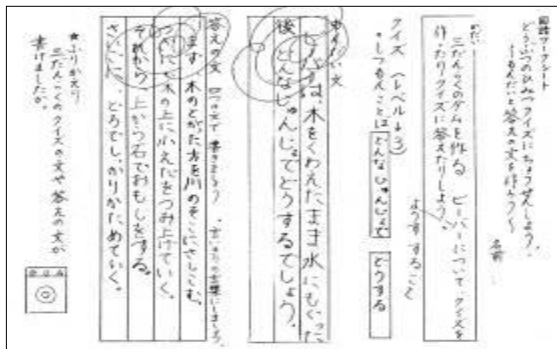 国語ワークシート
どうぶつのひみつクイズにちょうせんしよう。
〜もんだいと答えの文を作ろう〜
名前
めあて
三だんらくのダムを作る ビーバーについて クイズを
作ったりクイズに答えたりしよう。
ようす すること
クイズ (レベル↓3)
・しつもんことば どんなじゅんじょで どうする
もんだい文
ビーバーは、木をくわえたまま水にもぐった
後、どんなじゅんじょでどうするでしょう。
答えの文 四つの文で書きましょう
まず、木のとがった方を川のそこにさしこむ。
つぎに、木の上に小えだをつみ上げていく。
それから、上から石でおもしをする。
さいごに、どろでしっかりかためていく。
★ふりかえり
三だんらくのクイズの文や答えの文が
書けましたか。
◎